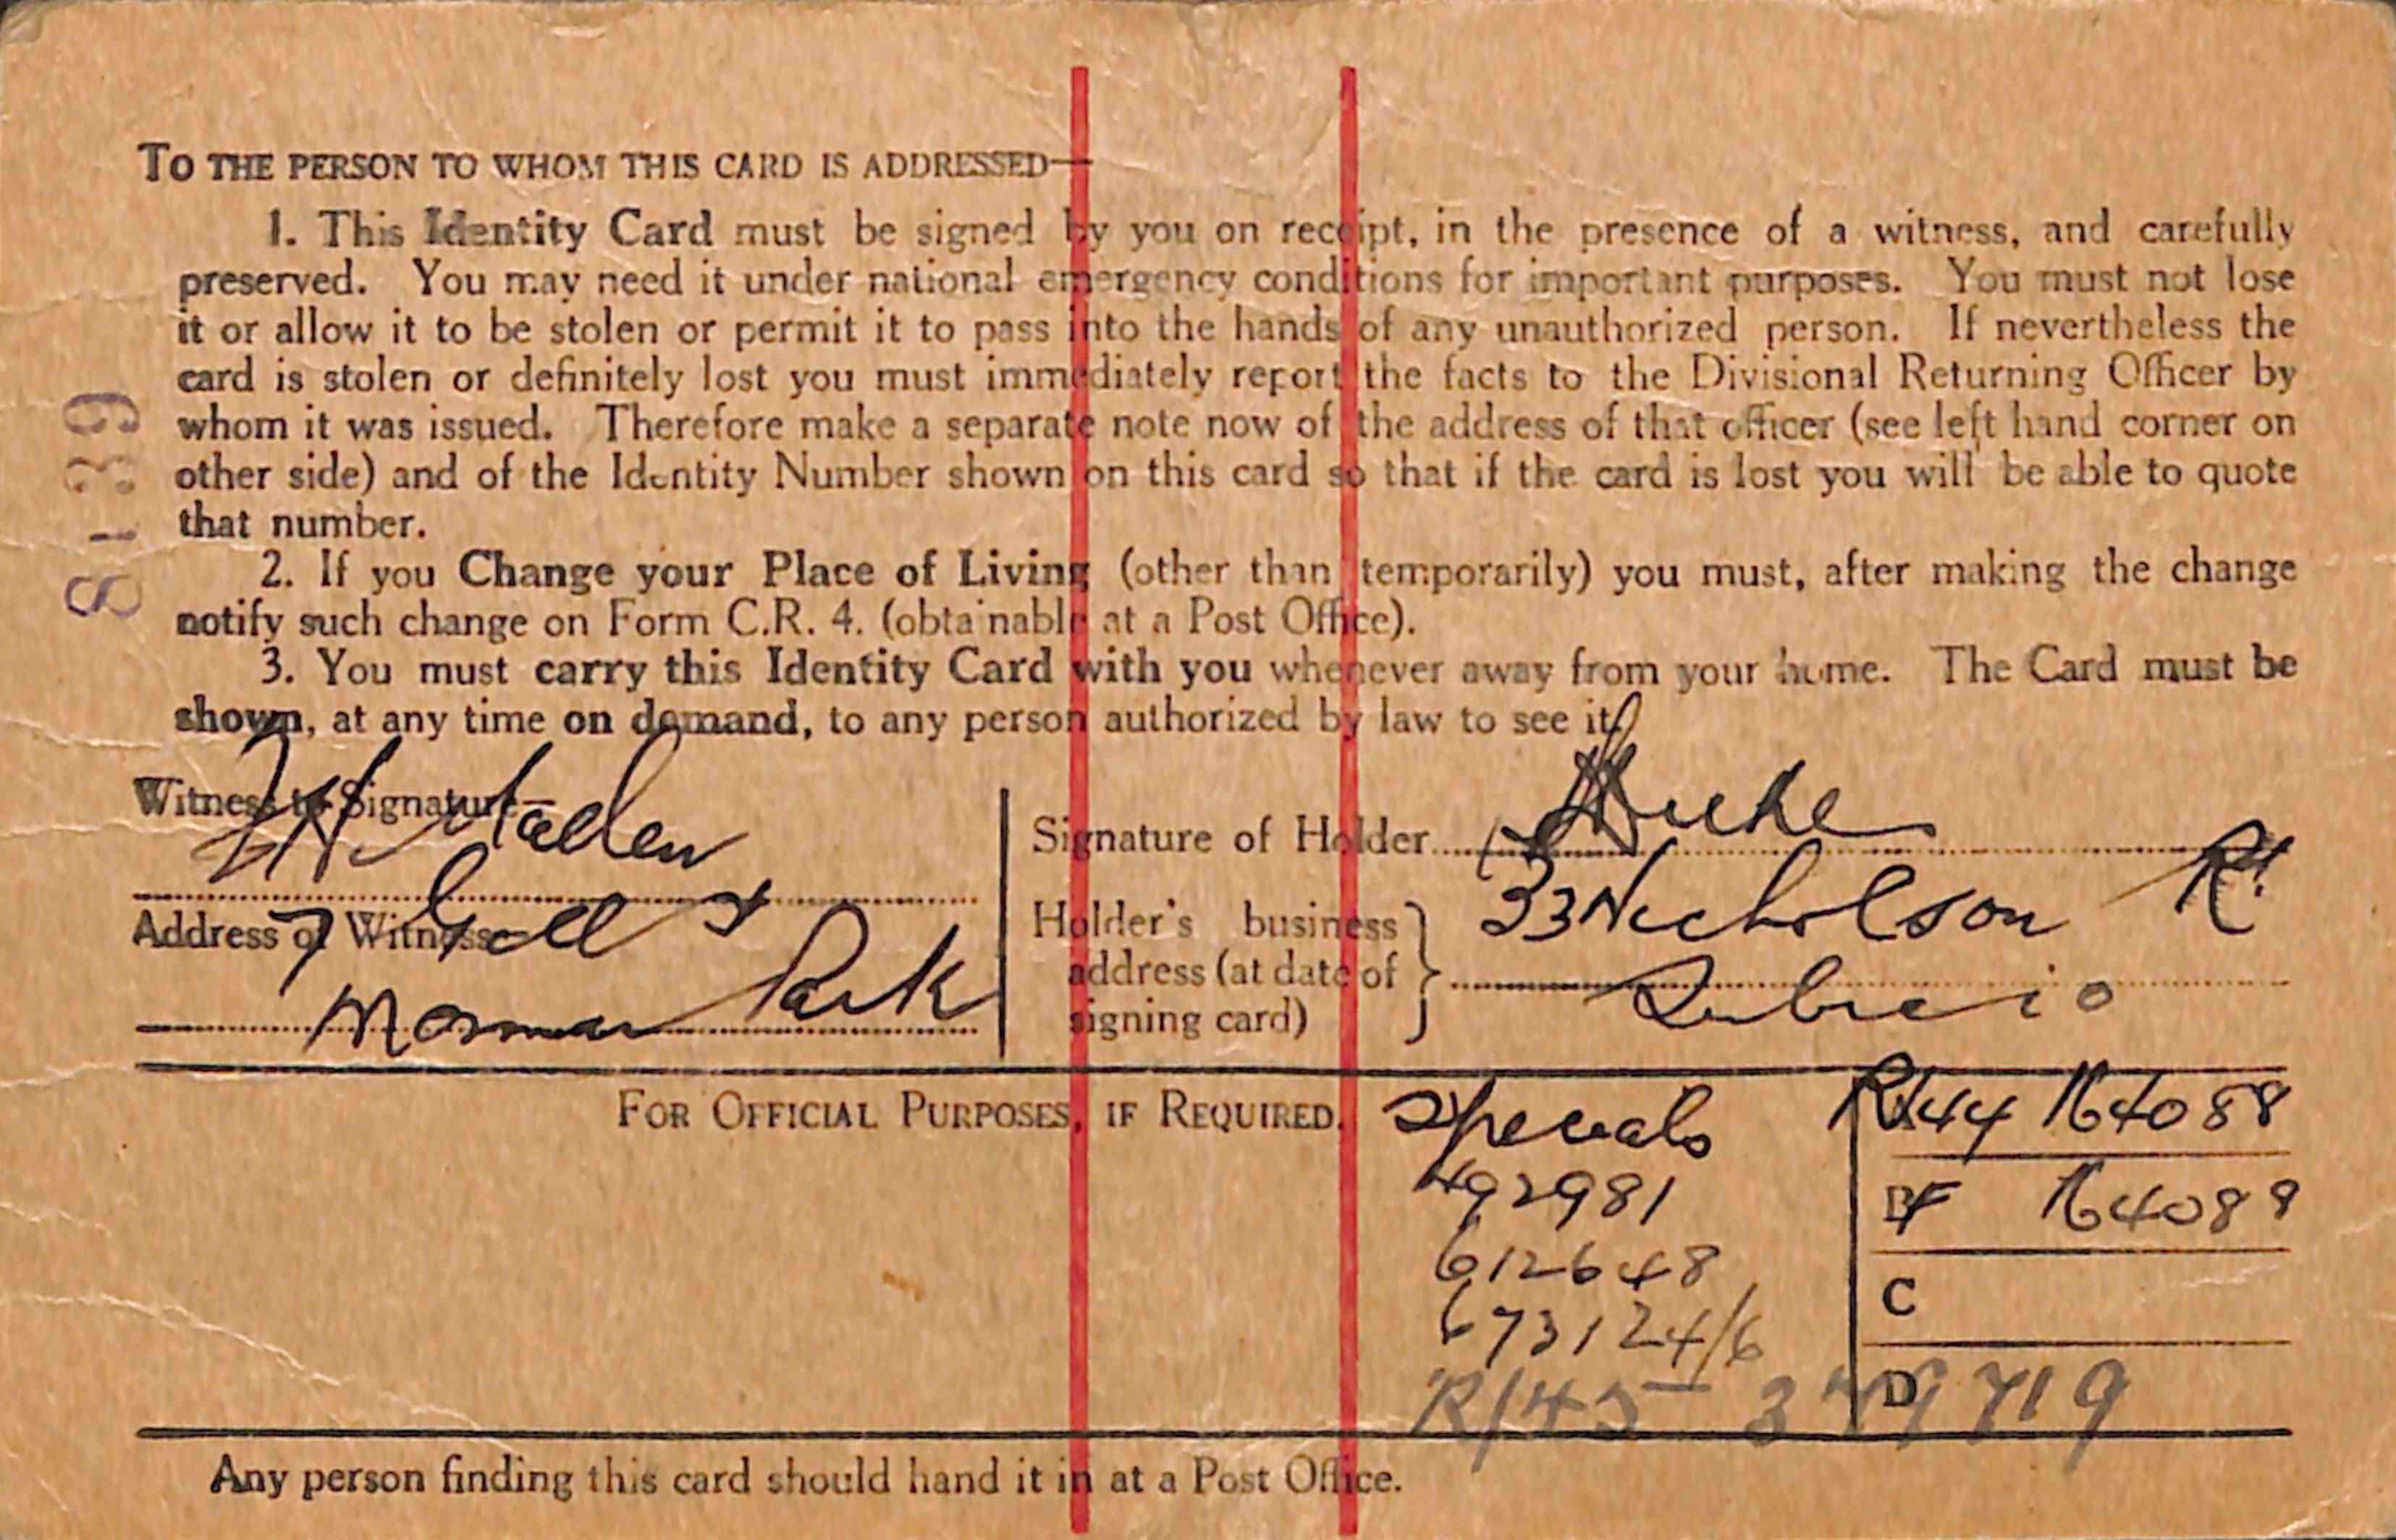 TO THE PERSON TO WHOM THIS CARD IS ADDRESSED—
1. This Identity Card must be signed by you on receipt, in the presence of a witness, and carefully
preserved. You may need it under national emergency conditions for important purposes. You must not lose
it or allow it to be stolen or permit it to pass into the hands of any unauthorized person. If nevertheless the
card is stolen or definitely lost you must immediately report the facts to the Divisional Returning Officer by
whom it was issued. Therefore make a separate note now of the address of that officer (see left hand corner on
other side) and of the Identity Number shown on this card so that if the card is lost you will be able to quote
that number.
2. If you Change your Place of Living (other than temporarily) you must, after making the change
notify such change on Form C.R. 4. (obtainable at a Post Office).
3. You must carry this Identity Card with you whenever away from your home. The Card must be
shown, at any time on demand, to any person authorized by law to see it.
8139
Witness to Signature—
Address of Witness—
Park
Signature of Holder
Holder's business address (at date of signing card)
33 Nicholson
FOR OFFICIAL PURPOSES, IF REQUIRED.
Specials
492981
612648
673124/6
R/45
R/44 164088
B 164089
C
D
719
Any person finding this card should hand it in at a Post Office.